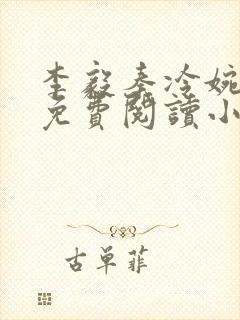 李毅秦冷婉
免費閱讀小
古單菲